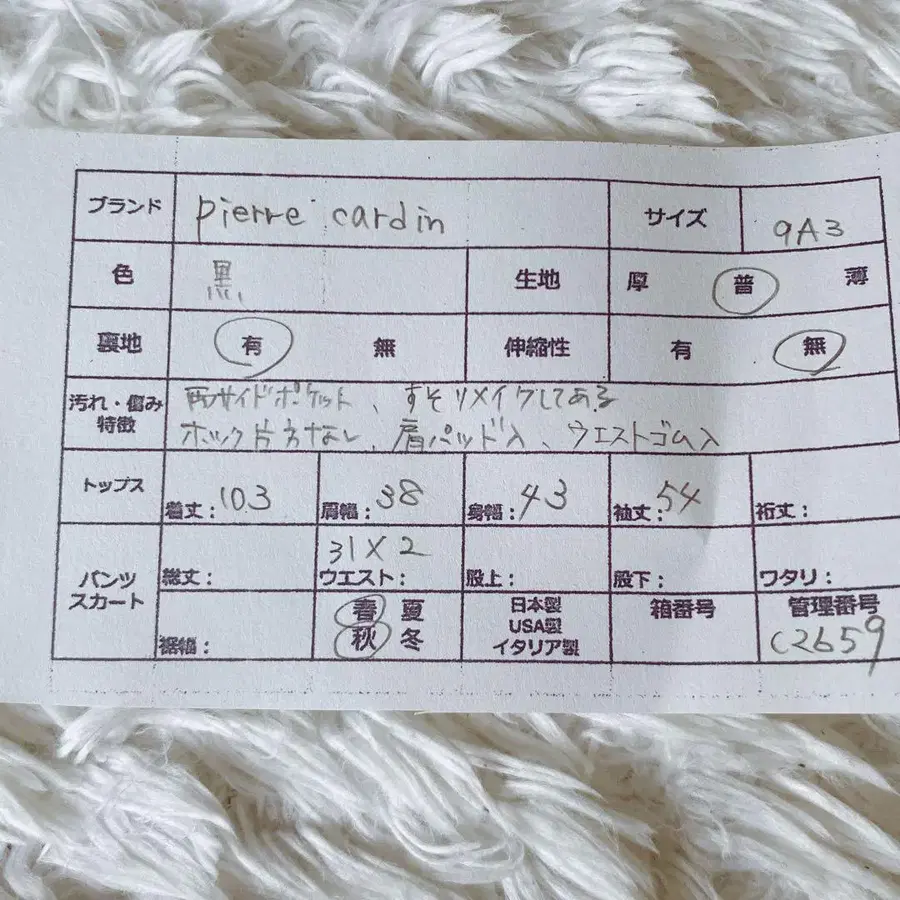 ブランド pierre cardin サイズ 9A3
色 黒 生地 厚 普 薄
裏地 有 無 伸縮性 有 無
汚れ・傷み 両サイドポケット、すそリメイクしてある
特徴 ホック片方なし、肩パッド入、ウエストゴム入
トップス 着丈:103 肩幅:38 身幅:43 袖丈:54 裄丈:
31×2
パンツ 総丈: ウエスト: 股上: 股下: ワタリ:
スカート 裾幅: 春 夏 日本製 箱番号 管理番号
USA製
秋 冬 イタリア製 C2659